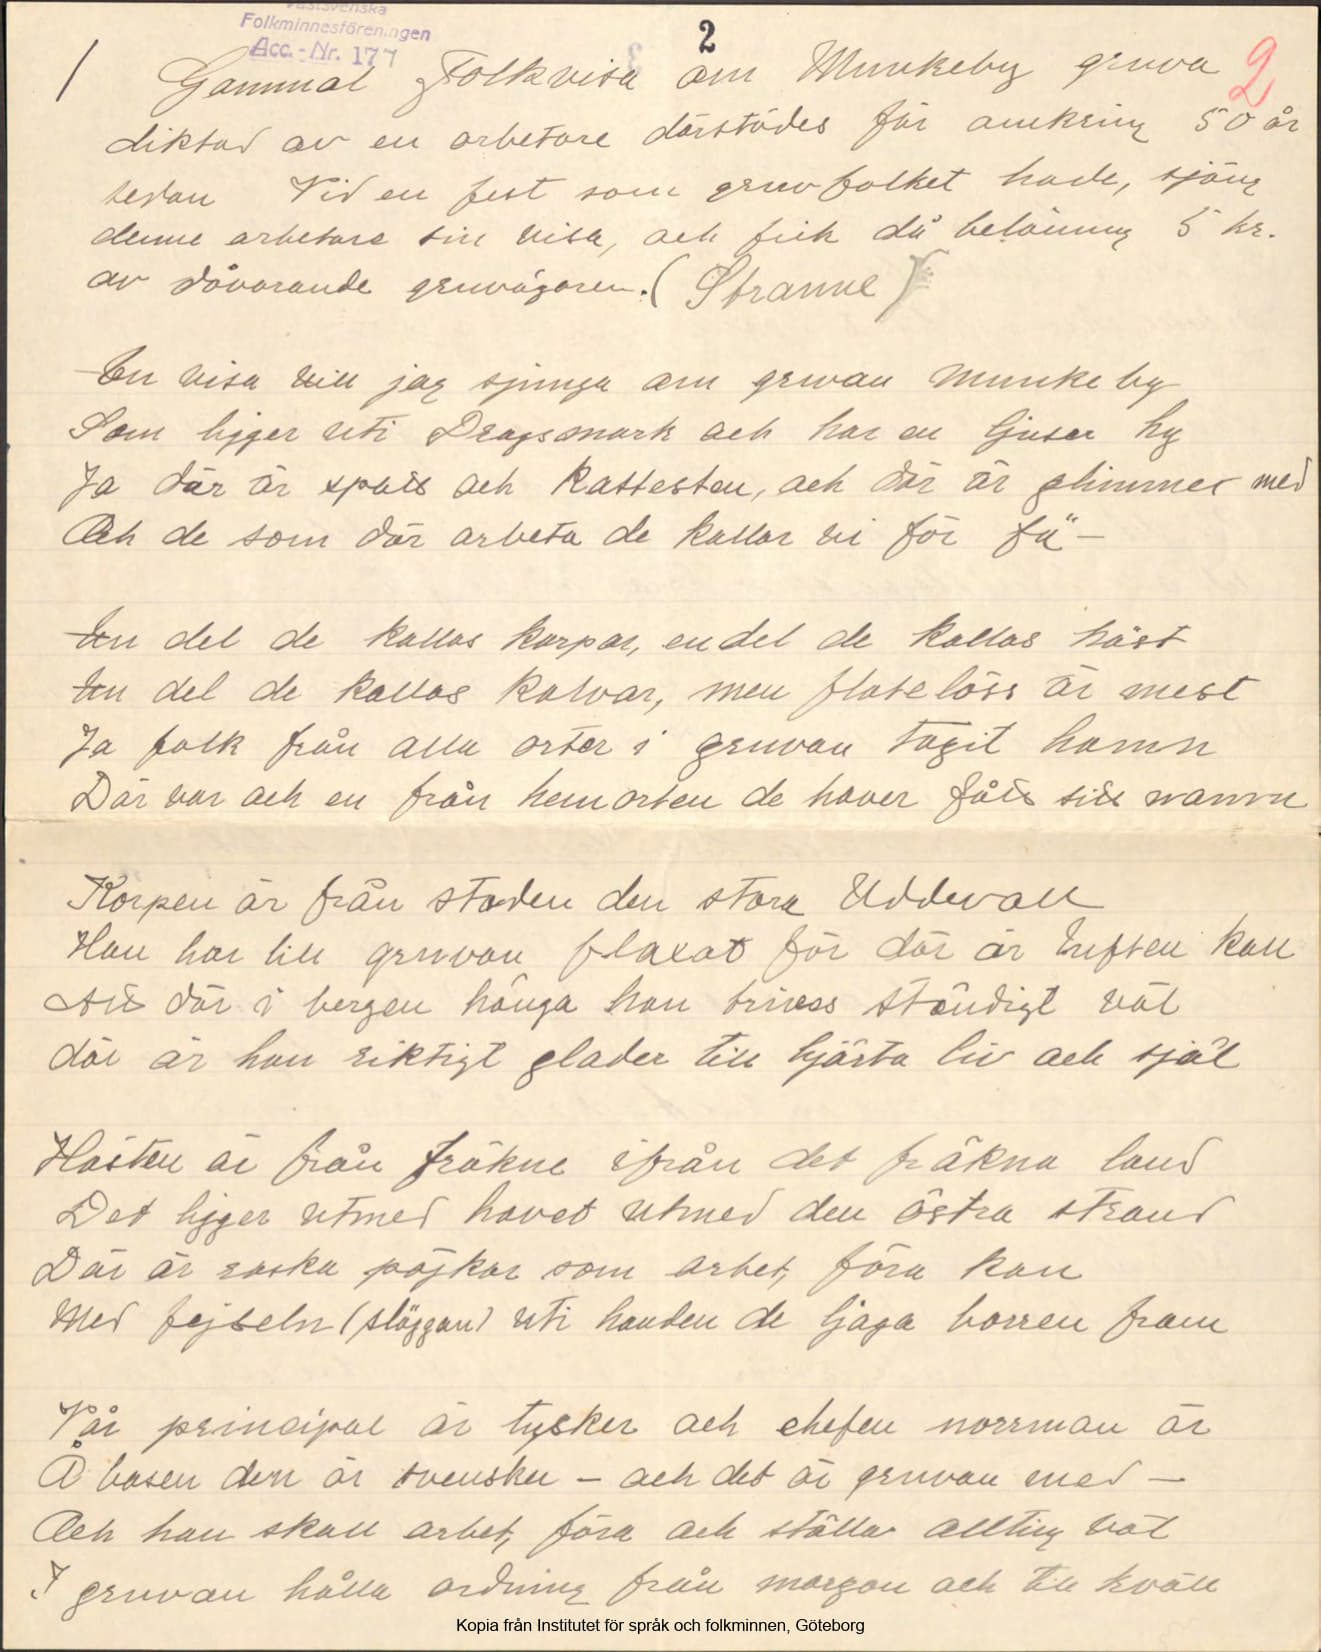 Västsvenska
Folkminnesföreningen
Acc.-Nr. 177
2
2
/ Gammal Folkvisa om Munkeby gruva
diktad av en arbetare därstädes för omkring 50 år
sedan Vid en fest som gruvfolket hade, sjöng
denne arbetare sin visa, och fick då belöning 5 kr.
av dåvarande gruvägaren. (Stranne)
En visa vill jag sjunga om gruvan Munkeby
Som ligger uti Dragsmark och har en ljuser hy
Ja där är spats och Kattesten, och där är glimmer med
Och de som där arbeta de kallar vi för fä –
En del de kallas korpar, en del de kallas häst
En del de kallas kalvar, men flatlöss är mest
Ja folk från alla orter i gruvan tagit hamn
Där var och en från hemorten de haver fått sitt namn
Korpen är från staden den stora Uddevall
Han har till gruvan flaxat för där är luften kall
Att där i bergen hänga han trivess ständigt väl
där är han riktigt glader till hjärta liv och själ
Hästen är från fräkne ifrån det fräkna land
Det ligger utmed havet utmed den östra strand
Där är raska pojkar som arbet, föra kan
Med fejseln (släggan) uti handen de ljaga borren fram
Vår principal är tysker och chefen norrman är
Å basen den är svensker – och det är gruvan med –
Och han skall arbet, föra och ställa allting väl
I gruvan hålla ordning från morgon och till kväll
Kopia från Institutet för språk och folkminnen, Göteborg